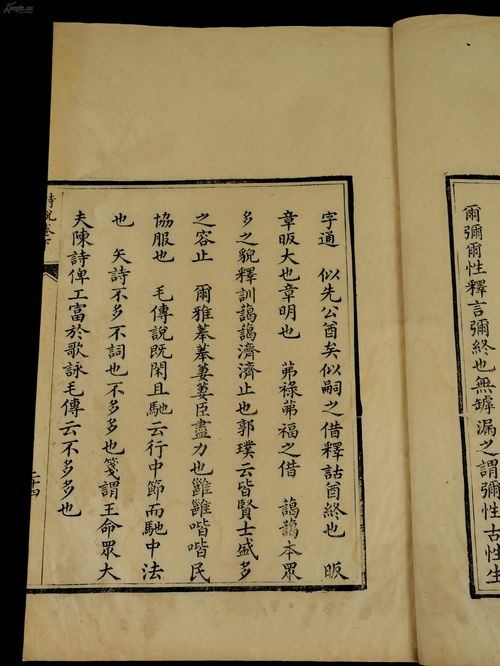 爾彌爾性釋言彌終也無罅漏之謂彌性古性生
字通　似先公酋矣似嗣之借釋詁酋終也　昄
章昄大也章明也　茀祿茀福之借　藹藹本眾
多之貌釋訓藹藹濟濟止也郭璞云皆賢士盛多
之容止　爾雅菶菶萋萋臣盡力也雝雝喈喈民
協服也　毛傳說既閑且馳云行中節而馳中法
也　矢詩不多不詞也不多多也箋謂王命眾大
夫陳詩俾工富於歌詠毛傳云不多多也
詩說卷下
二十四